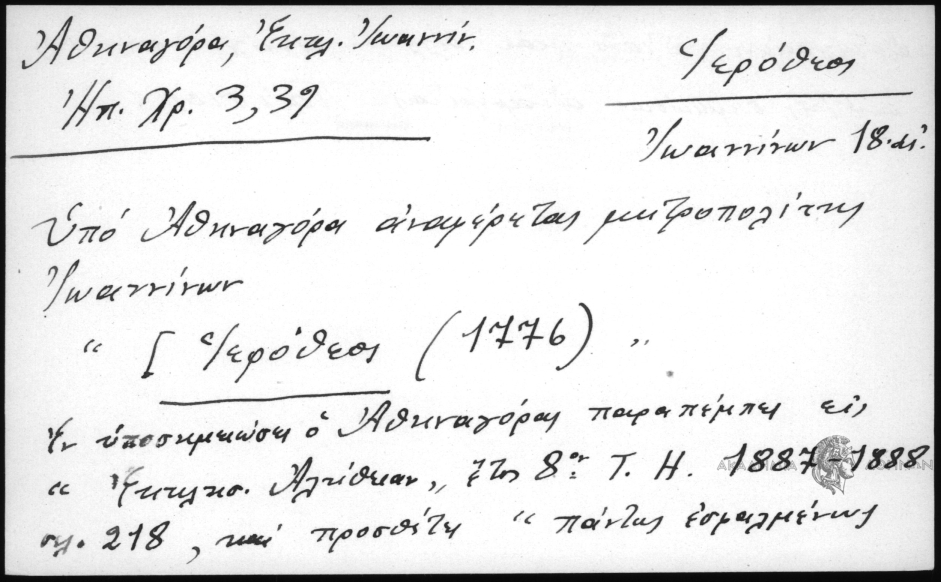 Ἀθηναγόρα, Ἐκκλ. Ἰωαννίν.
Ἠπ. Χρ. 3, 39
Ἱερόθεος
Ἰωαννίνων 18. αἰ.
Ὑπό Ἀθηναγόρα ἀναφέρεται μητροπολίτης
Ἰωαννίνων
“ [ Ἱερόθεος (1776) „
Ἐν ὑποσημειώσει ὁ Ἀθηναγόρας παραπέμπει εἰς
“ Ἐκκλησ. Ἀλήθειαν„ ἔτος 8ον Τ. Η. 1887-1888
σελ. 218, καί προσθέτει “ πάντως ἐσφαλμένως